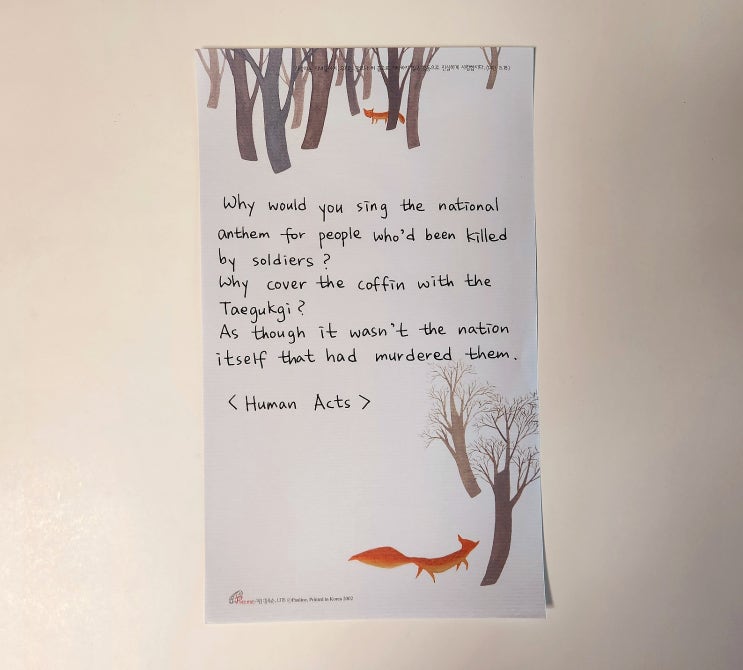 진실하게 사랑합시다.
Why would you sing the national
anthem for people who'd been killed
by soldiers?
Why cover the coffin with the
Taegukgi?
As though it wasn't the nation
itself that had murdered them.
<Human Acts>
Printed in Korea 2002